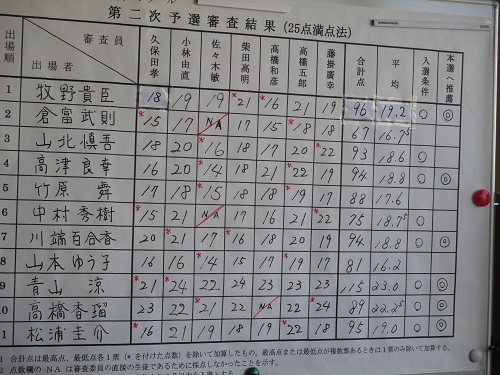 第二次予選審査結果（25点満点法）
出場順 審査員 出場者 久保田孝 小林由直 佐々木敏 柴田高明 高橋和彦 高橋五郎 藤掛廣幸 合計点 平均 入選条件 本選へ推薦
1 牧野貴臣 18 19 19 *21 *16 21 19 96 19.2 ○ ◎
2 倉富武則 *15 17 NA 17 15 *18 18 67 16.75
3 山北慎吾 18 20 *16 18 17 20 *22 93 18.6 ○
4 高津良幸 *16 20 16 18 21 *22 19 94 18.8 ○ ◎
5 竹原舜 17 *18 *15 18 18 17 18 88 17.6
6 中村秀樹 *15 21 NA 17 16 21 *22 75 18.75 ○
7 川端百合香 20 *21 17 *16 18 20 19 94 18.8 ○ ◎
8 山本ゆう子 16 16 *14 15 17 *19 17 81 16.2
9 青山涼 *21 *24 22 24 23 23 23 115 23.0 ○ ◎
10 高橋香瑠 23 22 *21 22 NA *24 22 89 22.25 ○ ◎
1 松浦圭介 *16 21 19 18 19 *22 18 95 19.0 ○ ◎
1 合計点は最高点、最低点各1票（*を付けた点数）を除いて加算したもの。最高点または最低点が複数票あるときは1票のみ除いて加算する。
2 点数欄のNAは審査委員の直接の生徒であるために採点しなかったことを示す。